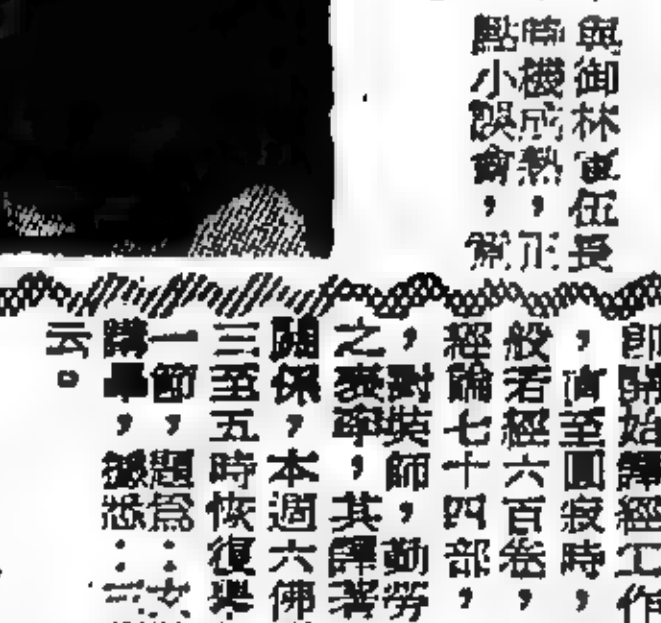 與御林軍伍長
時機成熟,正
點小誤會,
卽開始譯經工作
,直至圓寂時,
般若經六百卷,
經論七十四部,
,對奘師,勤勞
之表率,其譯著
關係,本週六佛
三至五時恢復舉
一節,題爲:女
講畢,據悉:
云。